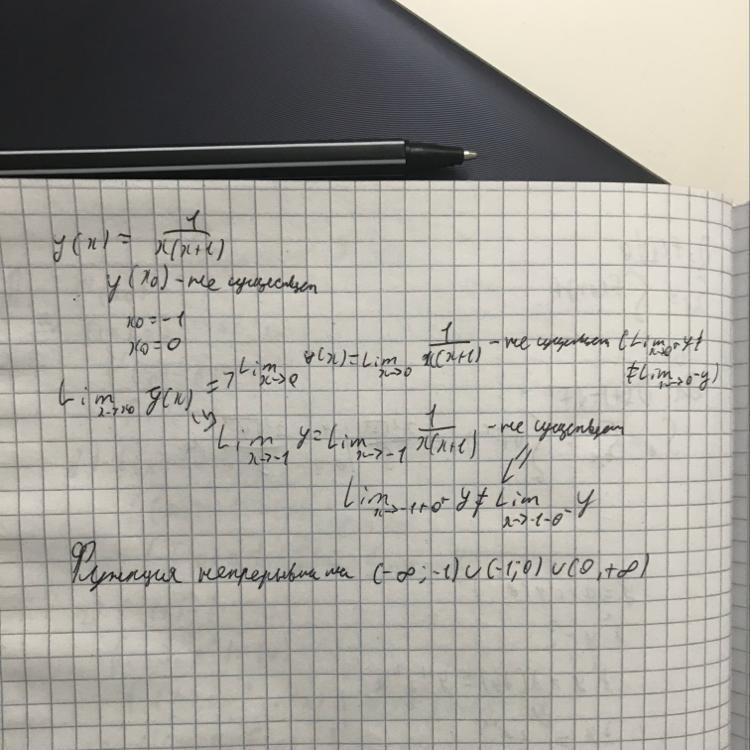 y(x) = 1/x(x+1)
y(x0) - не существует
x0 = -1
x0 = 0
Lim x→x0 y(x) => Lim x→0 y(x) = Lim x→0 1/x(x+1) - не существует (Lim y ≠
≠ Lim y)
Lim x→-1 y = Lim x→-1 1/x(x+1) - не существует
Lim x→-1+0 y ≠ Lim x→-1-0 y
Функция непрерывна на (-∞; -1) ∪ (-1; 0) ∪ (0, +∞)